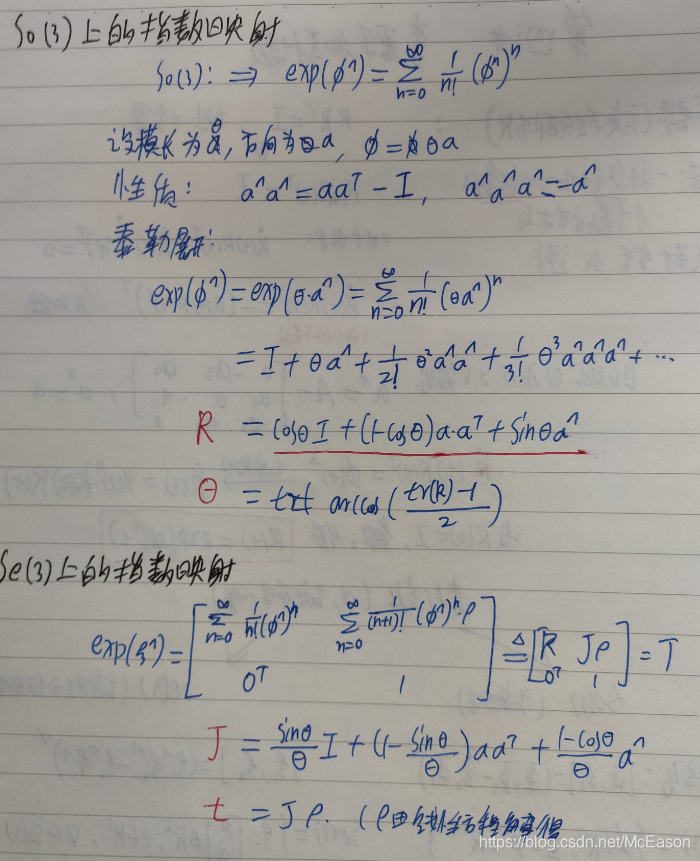 so(3)上的指数映射
so(3): ⇒ exp(φ^) = ∑_{n=0}^{∞} 1/n! (φ^)^n
设模长为θ, 方向为a, φ = θa
性质: a^a^ = aa^T - I, a^a^a^ = -a^
泰勒展开:
exp(φ^) = exp(θ·a^) = ∑_{n=0}^{∞} 1/n! (θa^)^n
= I + θa^ + 1/2! θ²a^a^ + 1/3! θ³a^a^a^ + ...
R = cosθ I + (1-cosθ)a·a^T + sinθ a^
θ = arccos( (tr(R)-1)/2 )
se(3)上的指数映射
exp(ξ^) = [ ∑_{n=0}^{∞} 1/n! (φ^)^n ∑_{n=0}^{∞} 1/(n+1)! (φ^)^n·ρ ; 0^T 1 ] ≜ [ R Jρ ; 0^T 1 ] = T
J = sinθ/θ I + (1 - sinθ/θ)aa^T + (1-cosθ)/θ a^
t = Jρ. (ρ由线性方程解得
https://blog.csdn.net/McEason